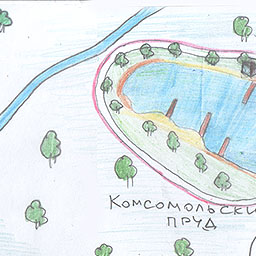 Комсомольски
пруд